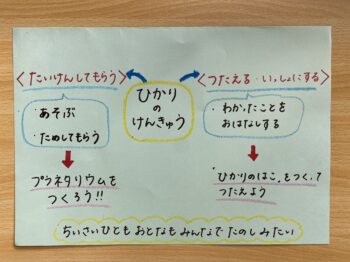 ひかり
の
けんきゅう
<たいけんしてもらう>
・あそぶ
・ためしてもらう
プラネタリウムを
つくろう!!
<つたえる・いっしょにする>
・わかったことを
おはなしする
・ひかりのはこ。をつくって
つたえよう
ちいさいひとも おとなも みんなで たのしみたい